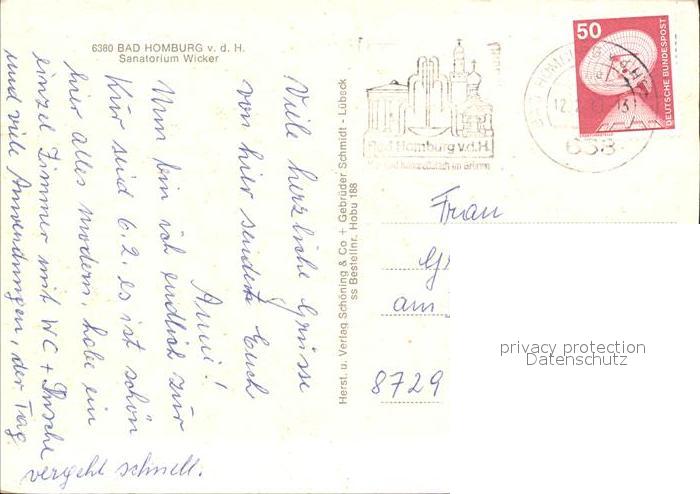 6380 BAD HOMBURG v. d. H.
Sanatorium Wicker
Viele herzliche Grüsse
von hier sendet Euch
Anni!
Nun bin ich endlich zur
Kur seid 6.2. es ist schön
hier alles modern, habe ein
einzel Zimmer mit WC + Dusche
und viele Anwendungen, der Tag
vergeht schnell.
Herst. u. Verlag Schöning & Co + Gebrüder Schmidt - Lübeck
ss Bestellnr. Hobu 188
Bad Homburg v.d.H.
50
DEUTSCHE BUNDESPOST
638
Frau
am
8729
privacy protection
Datenschutz